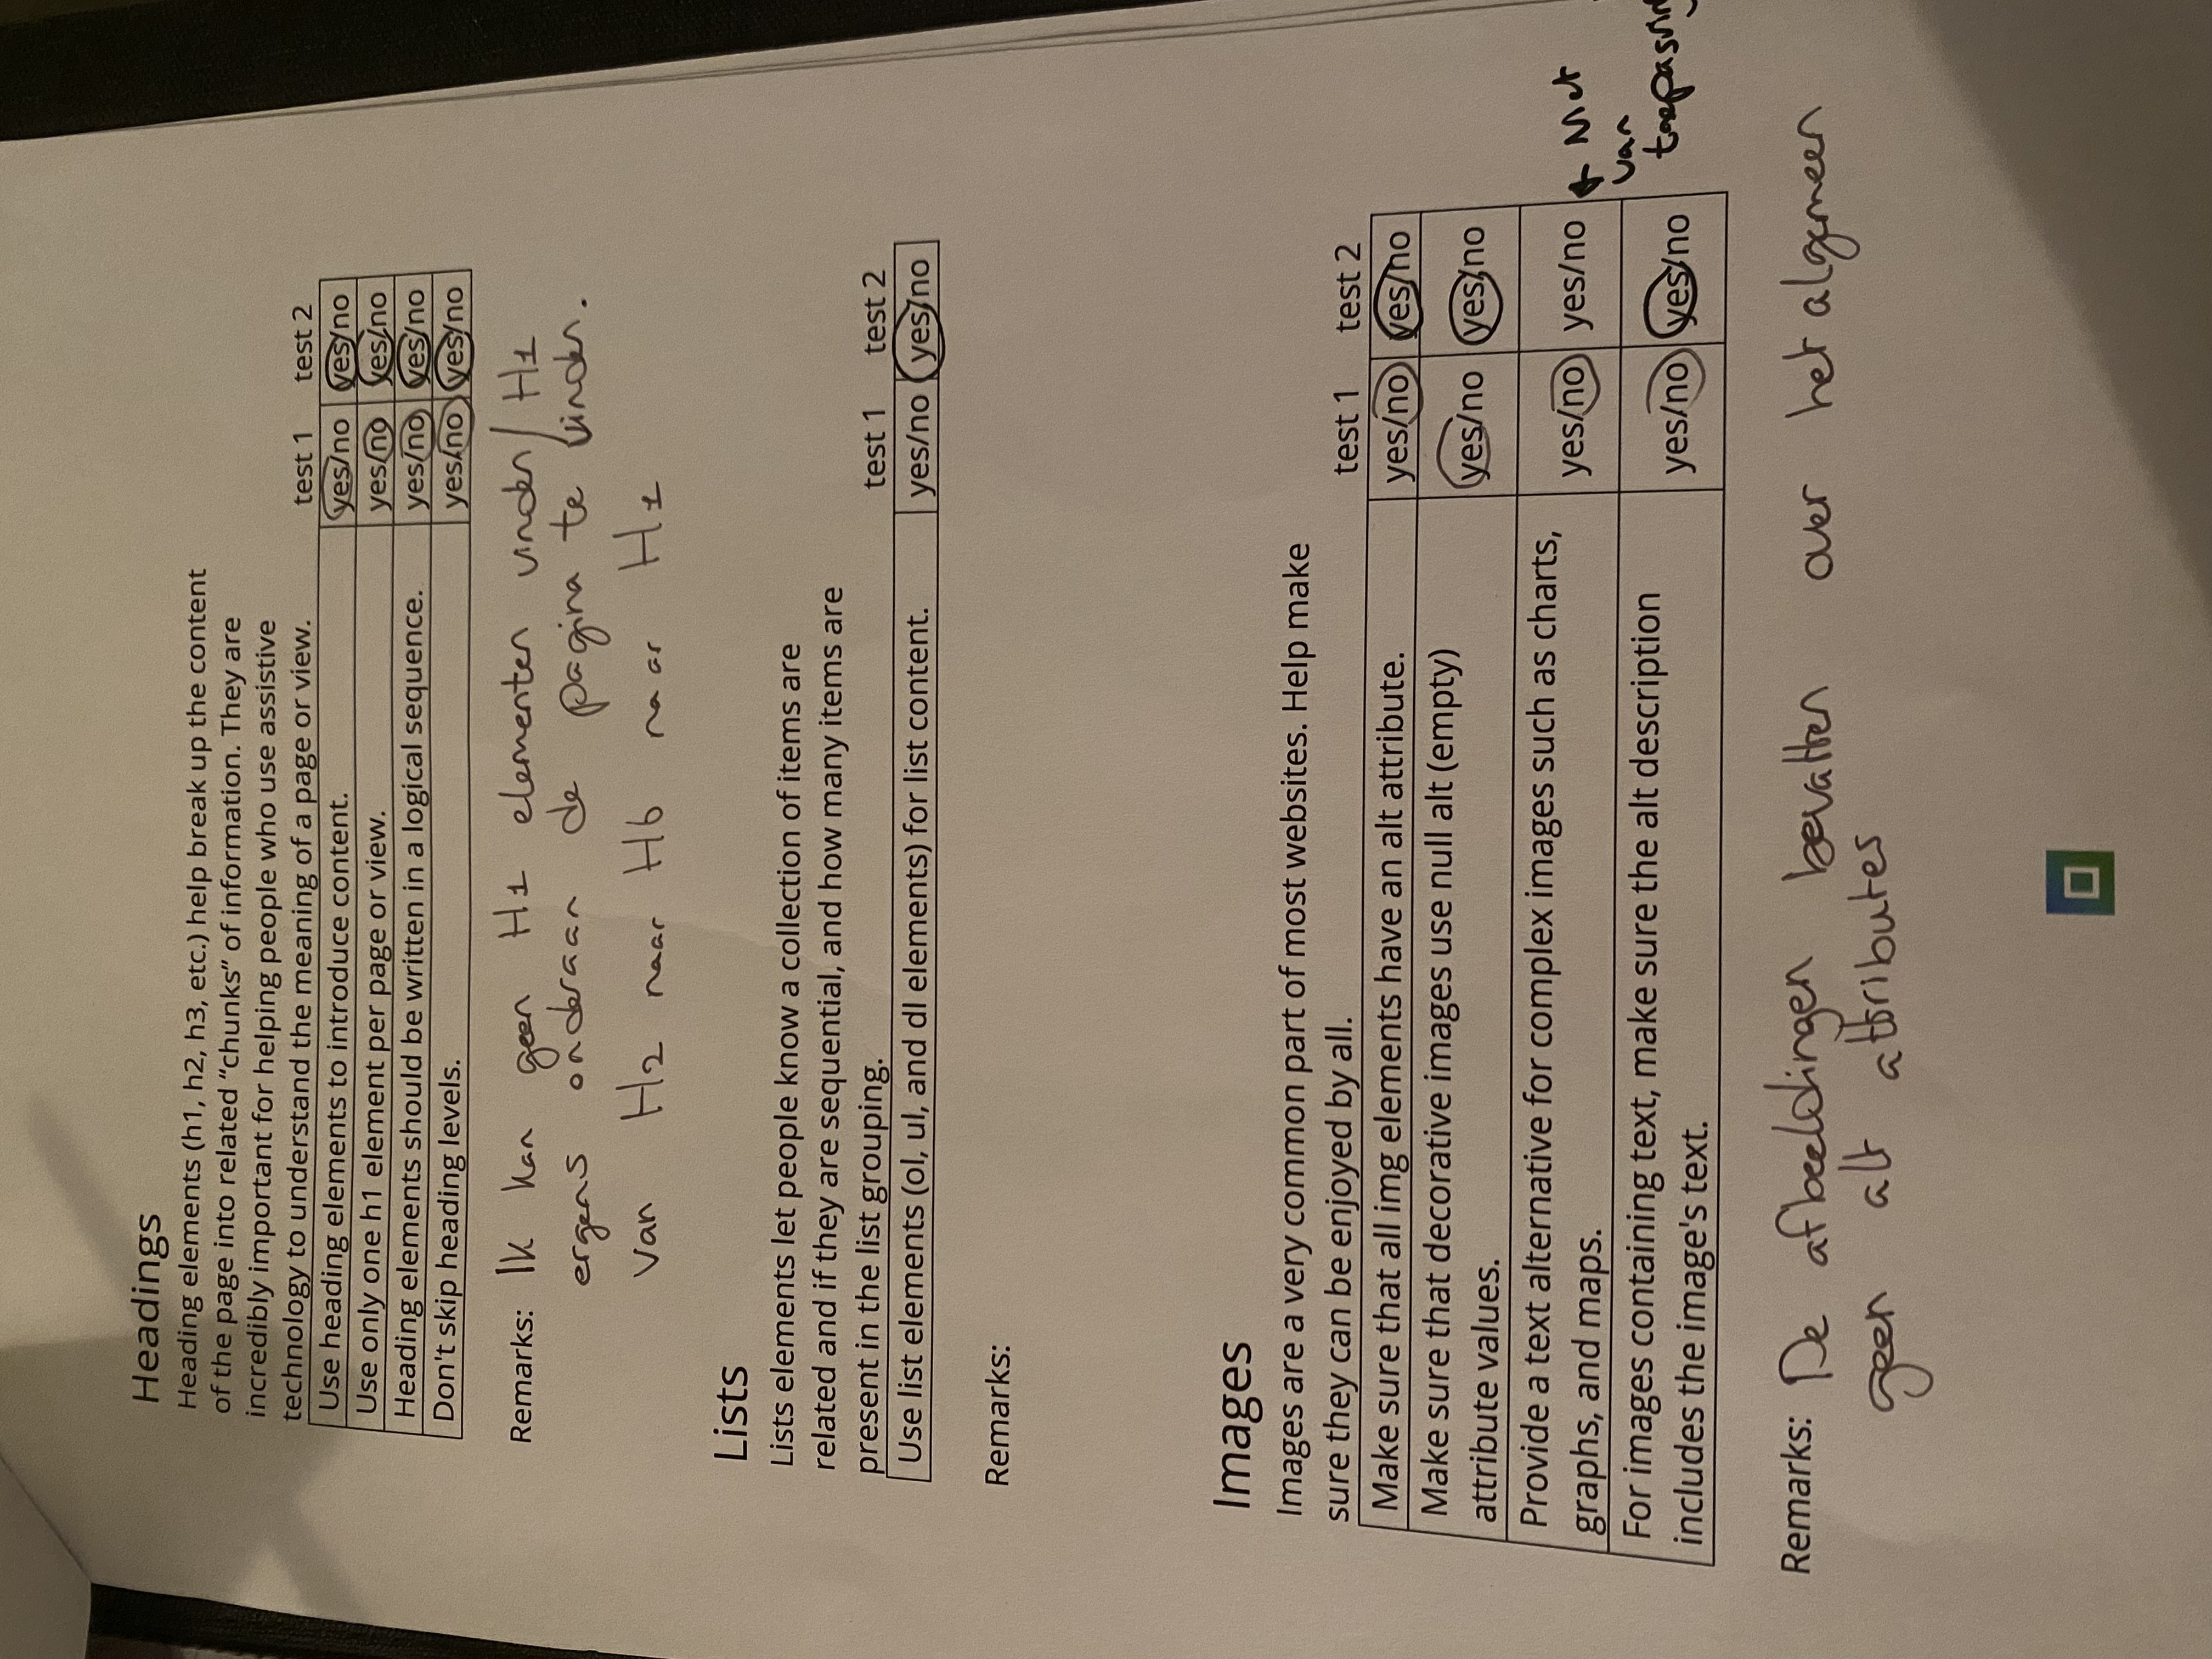 Headings
Heading elements (h1, h2, h3, etc.) help break up the content
of the page into related “chunks” of information. They are
incredibly important for helping people who use assistive
technology to understand the meaning of a page or view. test 1 test 2
Use heading elements to introduce content. yes/no yes/no
Use only one h1 element per page or view. yes/no yes/no
Heading elements should be written in a logical sequence. yes/no yes/no
Don't skip heading levels. yes/no yes/no
Remarks: Ik kan geen H1 elementen vinden/ H1
ergens onderaan de pagina te vinden.
van H2 naar H6 naar H1
Lists
Lists elements let people know a collection of items are
related and if they are sequential, and how many items are
present in the list grouping. test 1 test 2
Use list elements (ol, ul, and dl elements) for list content. yes/no yes/no
Remarks:
Images
Images are a very common part of most websites. Help make
sure they can be enjoyed by all. test 1 test 2
Make sure that all img elements have an alt attribute. yes/no yes/no
Make sure that decorative images use null alt (empty)
attribute values. yes/no yes/no
Provide a text alternative for complex images such as charts,
graphs, and maps. yes/no yes/no
Niet
van
toepassing
For images containing text, make sure the alt description
includes the image's text. yes/no yes/no
Remarks: De afbeeldingen bevatten over het algemeen
geen alt attributes